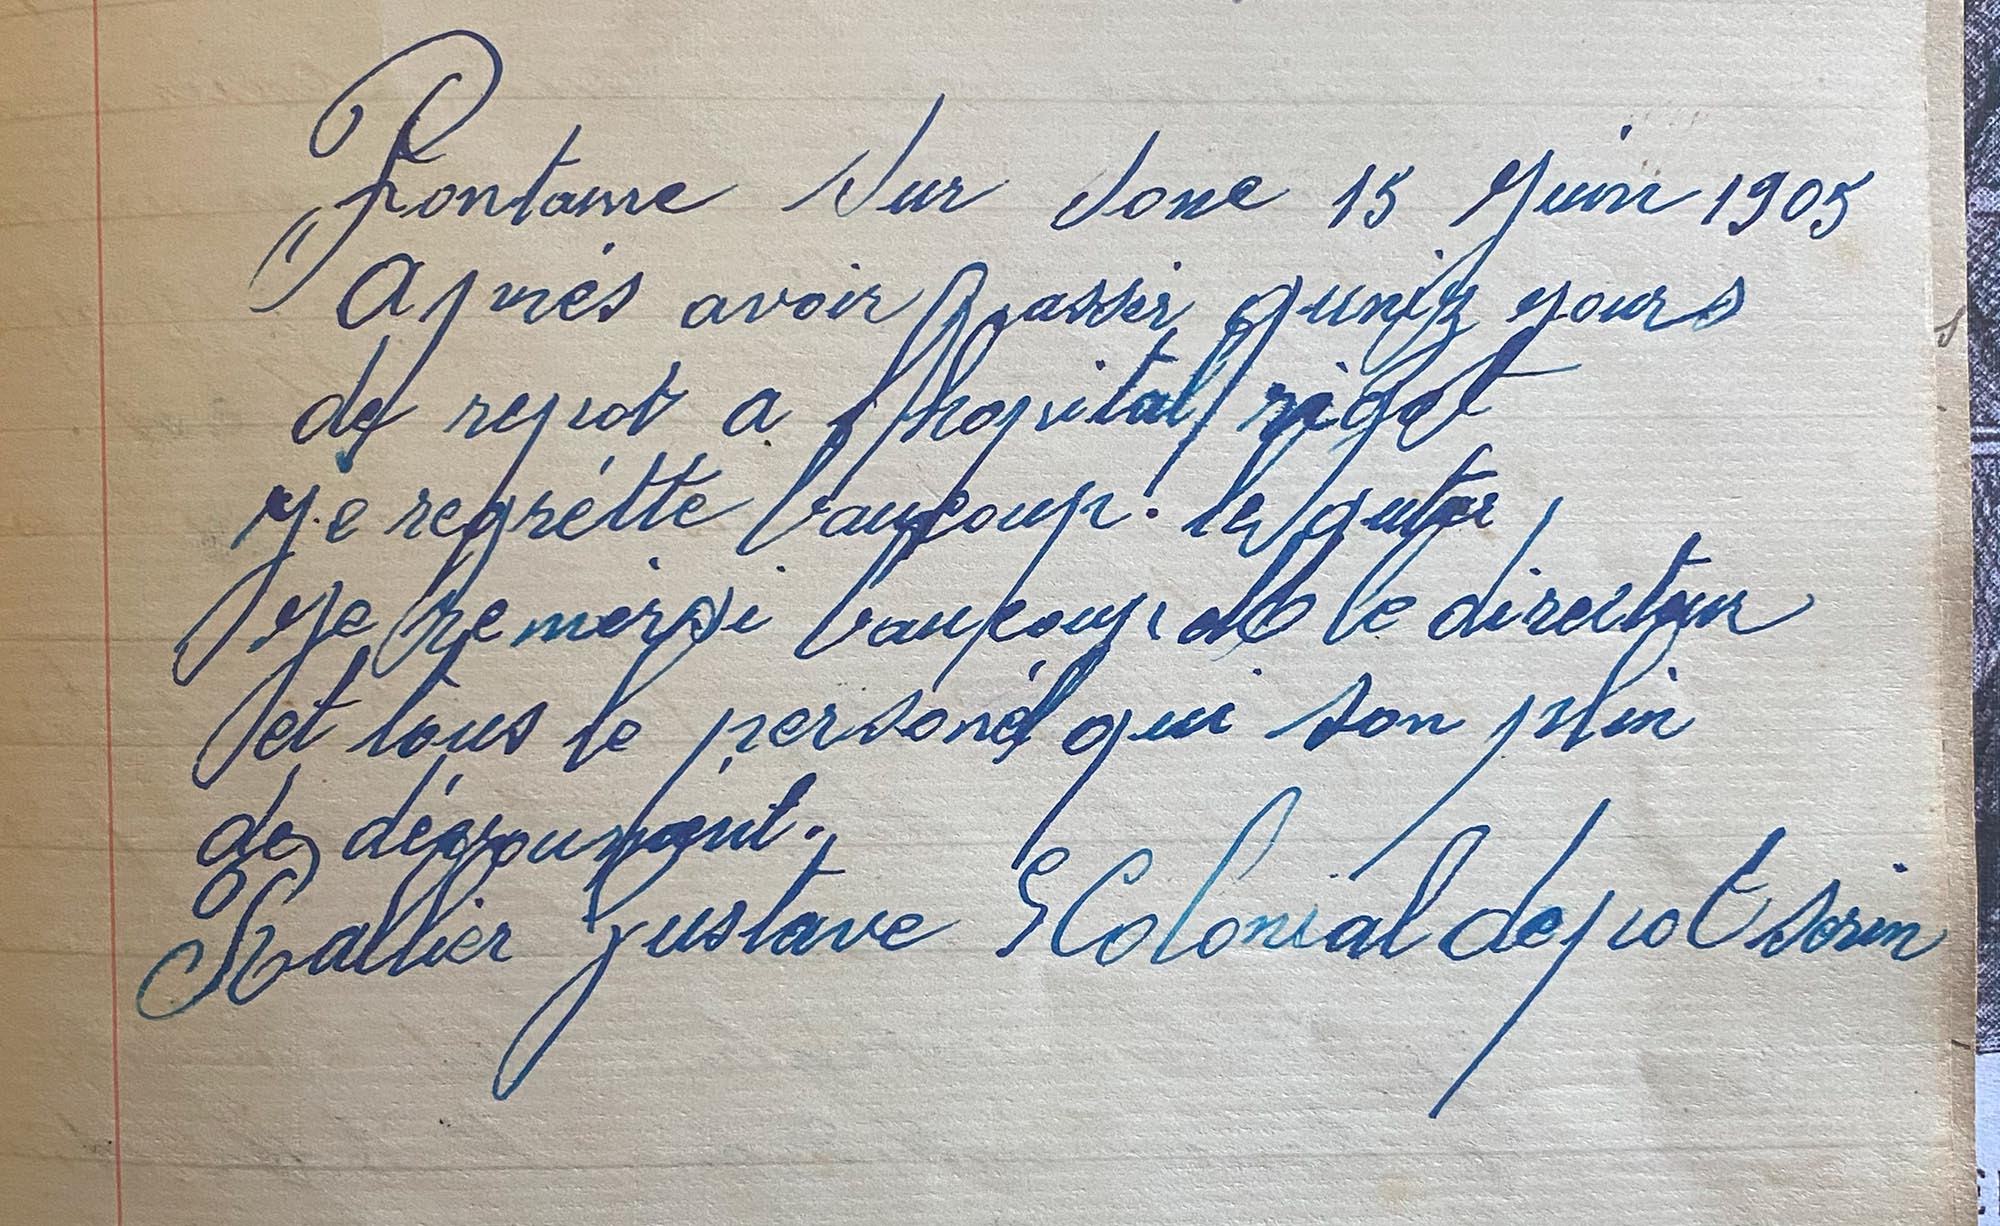 Fontaine sur Sone 15 Juin 1905
Après avoir passér quniz yours
de repot a l'hopital rigot
Je regrétte baucoup. le quter
Je remerssi baucoup le directeur
et tous le personél qui son plin
de dégroumént.
Rallier Gustave Colonial depot sorin